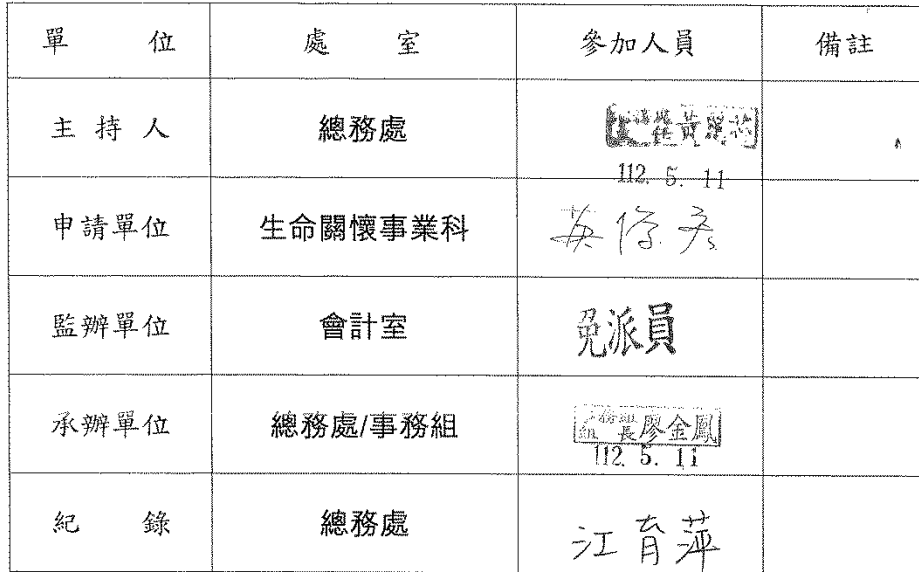 單 位 處 室 參加人員 備註
主 持 人 總務處 黃
112. 5. 11
申請單位 生命關懷事業科
監辦單位 會計室 免派員
承辦單位 總務處/事務組 事務組
組 長廖金鳳
112. 5. 11
紀 錄 總務處 江育萍